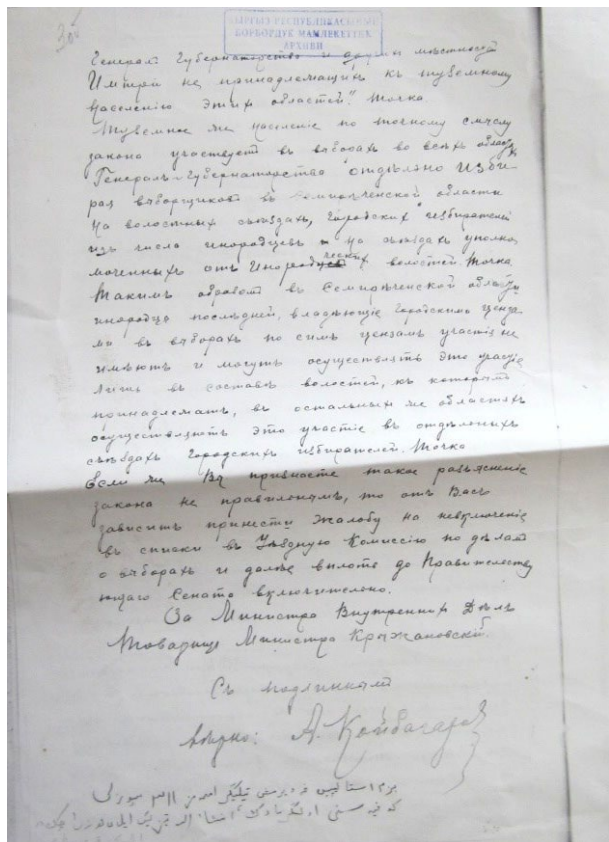 КЫРГЫЗ РЕСПУБЛИКАСЫНЫН
БОРБОРДУК МАМЛЕКЕТТИК
АРХИВИ
Генерал Губернаторство и других мѣстностей
Имперіи не принадлежащихъ къ туземному
населенію этихъ областей." Точка
Туземное же населеніе по точному смыслу
закона участвуетъ въ выборахъ во всѣхъ областях
Генералъ-Губернаторства отдѣльно изби
рая выборщиковъ въ Семирѣченской области
на волостныхъ съѣздахъ, городскихъ избирателей
изъ числа инородцевъ и на съѣздахъ уполно
моченныхъ отъ инородческихъ волостей. Точка
Такимъ образомъ въ Семирѣченской области
инородцы послѣдней, владѣющіе городскими ценза
ми въ выборахъ по симъ цензамъ участія не
имѣютъ и могутъ осуществлять это участіе
лишь въ составѣ волостей, къ которымъ
принадлежатъ, въ остальныхъ же областяхъ
осуществляютъ это участіе въ отдѣльныхъ
съѣздахъ городскихъ избирателей. Точка
Если же Вы признаете такое разъясненіе
закона не правильнымъ, то отъ Васъ
зависитъ принести жалобу на невключеніе
въ списки въ Уѣздную Комиссію по дѣламъ
о выборахъ и далѣе вплоть до Правительству
ющаго Сената включительно.
За Министра Внутреннихъ Дѣлъ
Товарищъ Министра Крыжановскій.
Съ подлиннымъ
вѣрно: А. Койбагаров